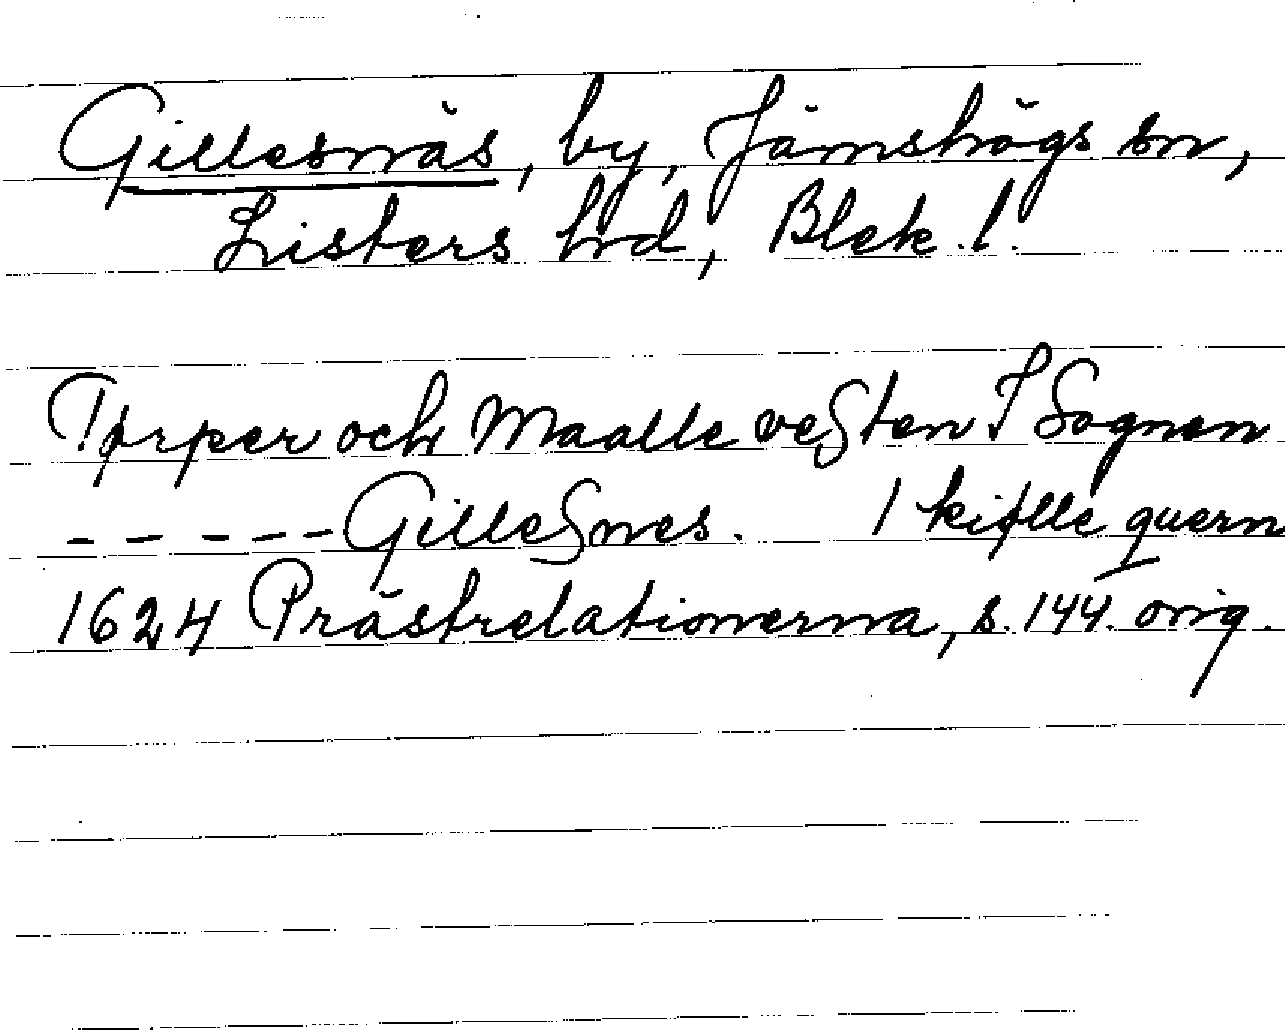 Gillesnäs, by, Jämshögs sn,
Listers hrd, Blek. l.
Tørper och Maalle vesten I Sognen
- - - - - Gillesnes. 1 kiølle quern
1624 Prästrelationerna, s. 144. orig.